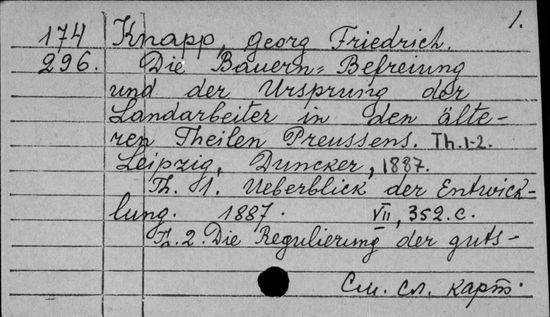 1.
174 Knapp, Georg Friedrich.
296. Die Bauern=Befreiung
und der Ursprung der
Landarbeiter in den älte-
ren Theilen Preussens. Th.1-2.
Leipzig, Duncker, 1887.
Th. 1. Ueberblick der Entwick-
lung. 1887. VII, 352.c.
Th. 2. Die Regulierung der guts-
См. сл. карт.